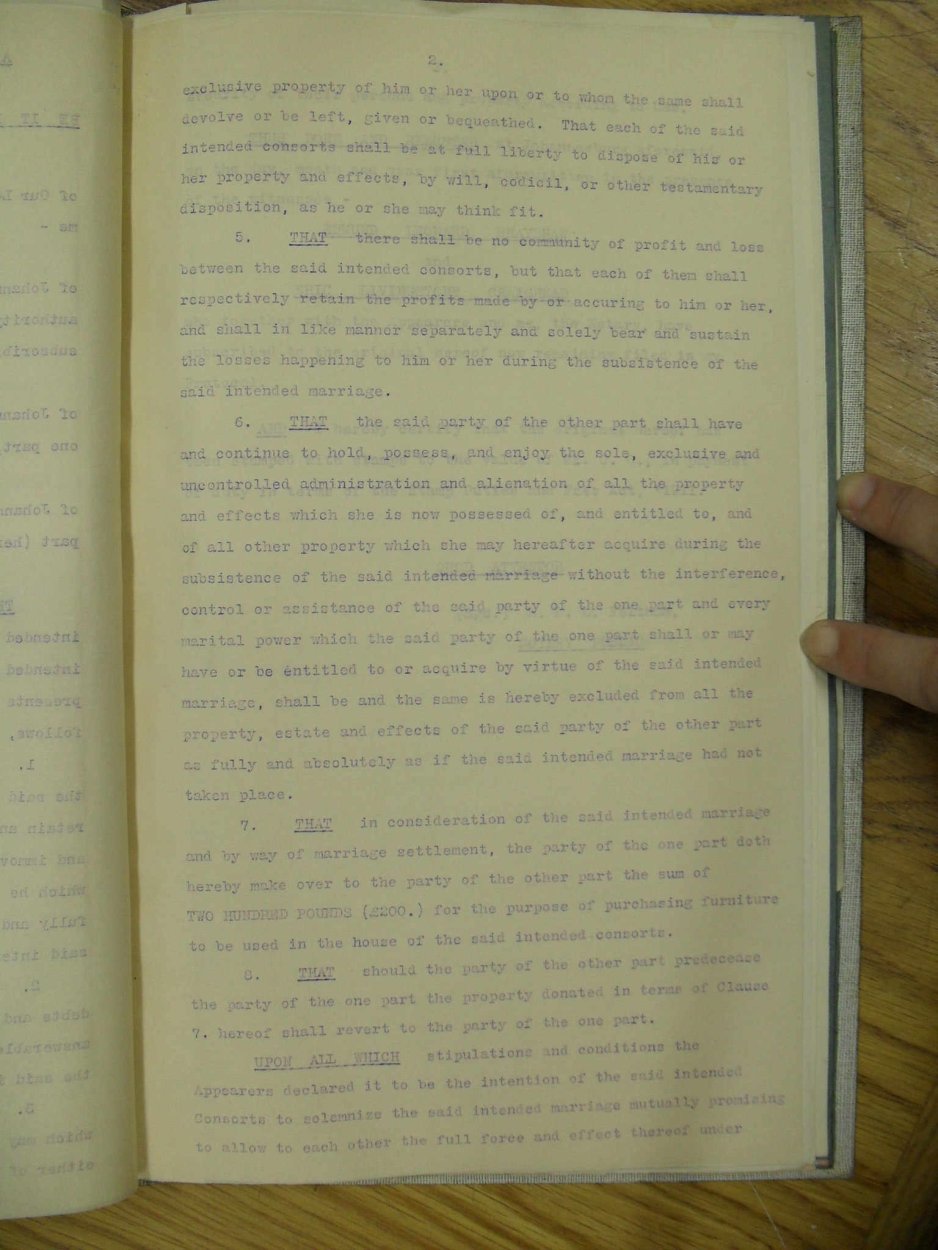 2.
exclusive property of him or her upon or to whom the same shall
devolve or be left, given or bequeathed.  That each of the said
intended consorts shall be at full liberty to dispose of his or
her property and effects, by will, codicil, or other testamentary
disposition, as he or she may think fit.
5. THAT there shall be no community of profit and loss
between the said intended consorts, but that each of them shall
respectively retain the profits made by or accuring to him or her,
and shall in like manner separately and solely bear and sustain
the losses happening to him or her during the subsistence of the
said intended marriage.
6. THAT the said party of the other part shall have
and continue to hold, possess, and enjoy the sole, exclusive and
uncontrolled administration and alienation of all the property
and effects which she is now possessed of, and entitled to, and
of all other property which she may hereafter acquire during the
subsistence of the said intended marriage without the interference,
control or assistance of the said party of the one part and every
marital power which the said party of the one part shall or may
have or be entitled to or acquire by virtue of the said intended
marriage, shall be and the same is hereby excluded from all the
property, estate and effects of the said party of the other part
as fully and absolutely as if the said intended marriage had not
taken place.
7. THAT in consideration of the said intended marriage
and by way of marriage settlement, the party of the one part doth
hereby make over to the party of the other part the sum of
TWO HUNDRED POUNDS (£200.) for the purpose of purchasing furniture
to be used in the house of the said intended consorts.
8. THAT should the party of the other part predecease
the party of the one part the property donated in terms of Clause
7. hereof shall revert to the party of the one part.
UPON ALL WHICH stipulations and conditions the
Appearers declared it to be the intention of the said intended
Consorts to solemnize the said intended marriage mutually promising
to allow to each other the full force and effect thereof under